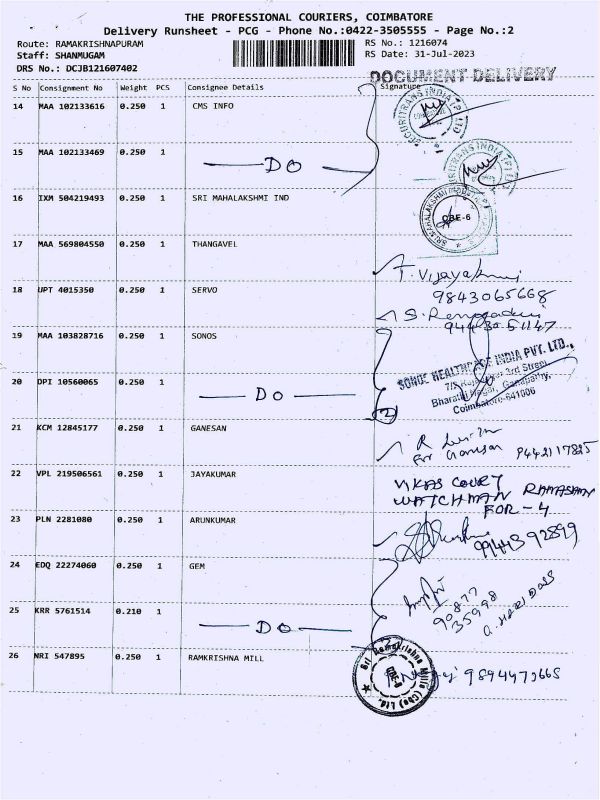 THE PROFESSIONAL COURIERS, COIMBATORE
Delivery Runsheet - PCG - Phone No.:0422-3505555 - Page No.:2
Route: RAMAKRISHNAPURAM RS No.: 1216074
Staff: SHANMUGAM RS Date: 31-Jul-2023
DRS No.: DCJB121607402
DOCUMENT DELIVERY
S No Consignment No Weight PCS Consignee Details Signature
14 MAA 102133616 0.250 1 CMS INFO
SECURITRANS INDIA (P) LTD
15 MAA 102133469 0.250 1 DO
SECURITRANS INDIA (P) LTD
16 IXM 504219493 0.250 1 SRI MAHALAKSHMI IND
CBE-6
17 MAA 569804550 0.250 1 THANGAVEL
T. Vijayalakshmi
9843065668
18 UPT 4015350 0.250 1 SERVO
S.
19 MAA 103828716 0.250 1 SONOS
HEALTHCARE INDIA PVT. LTD.,
3rd Street,
Bharathi Nagar, Ganapathy,
Coimbatore-641006
20 DPI 10560065 0.250 1 DO
2
21 KCM 12845177 0.250 1 GANESAN
R
for Ganesan 9442117825
22 VPL 219506561 0.250 1 JAYAKUMAR
VIKAS COURT
WATCHMAN RAMASAMY
FOR - 4
23 PLN 2281080 0.250 1 ARUNKUMAR
9944392899
24 EDQ 22274060 0.250 1 GEM
90877
35998
25 KRR 5761514 0.210 1 DO
26 NRI 547895 0.250 1 RAMKRISHNA MILL
Sri Ramakrishna Mills (Cbe) Ltd.